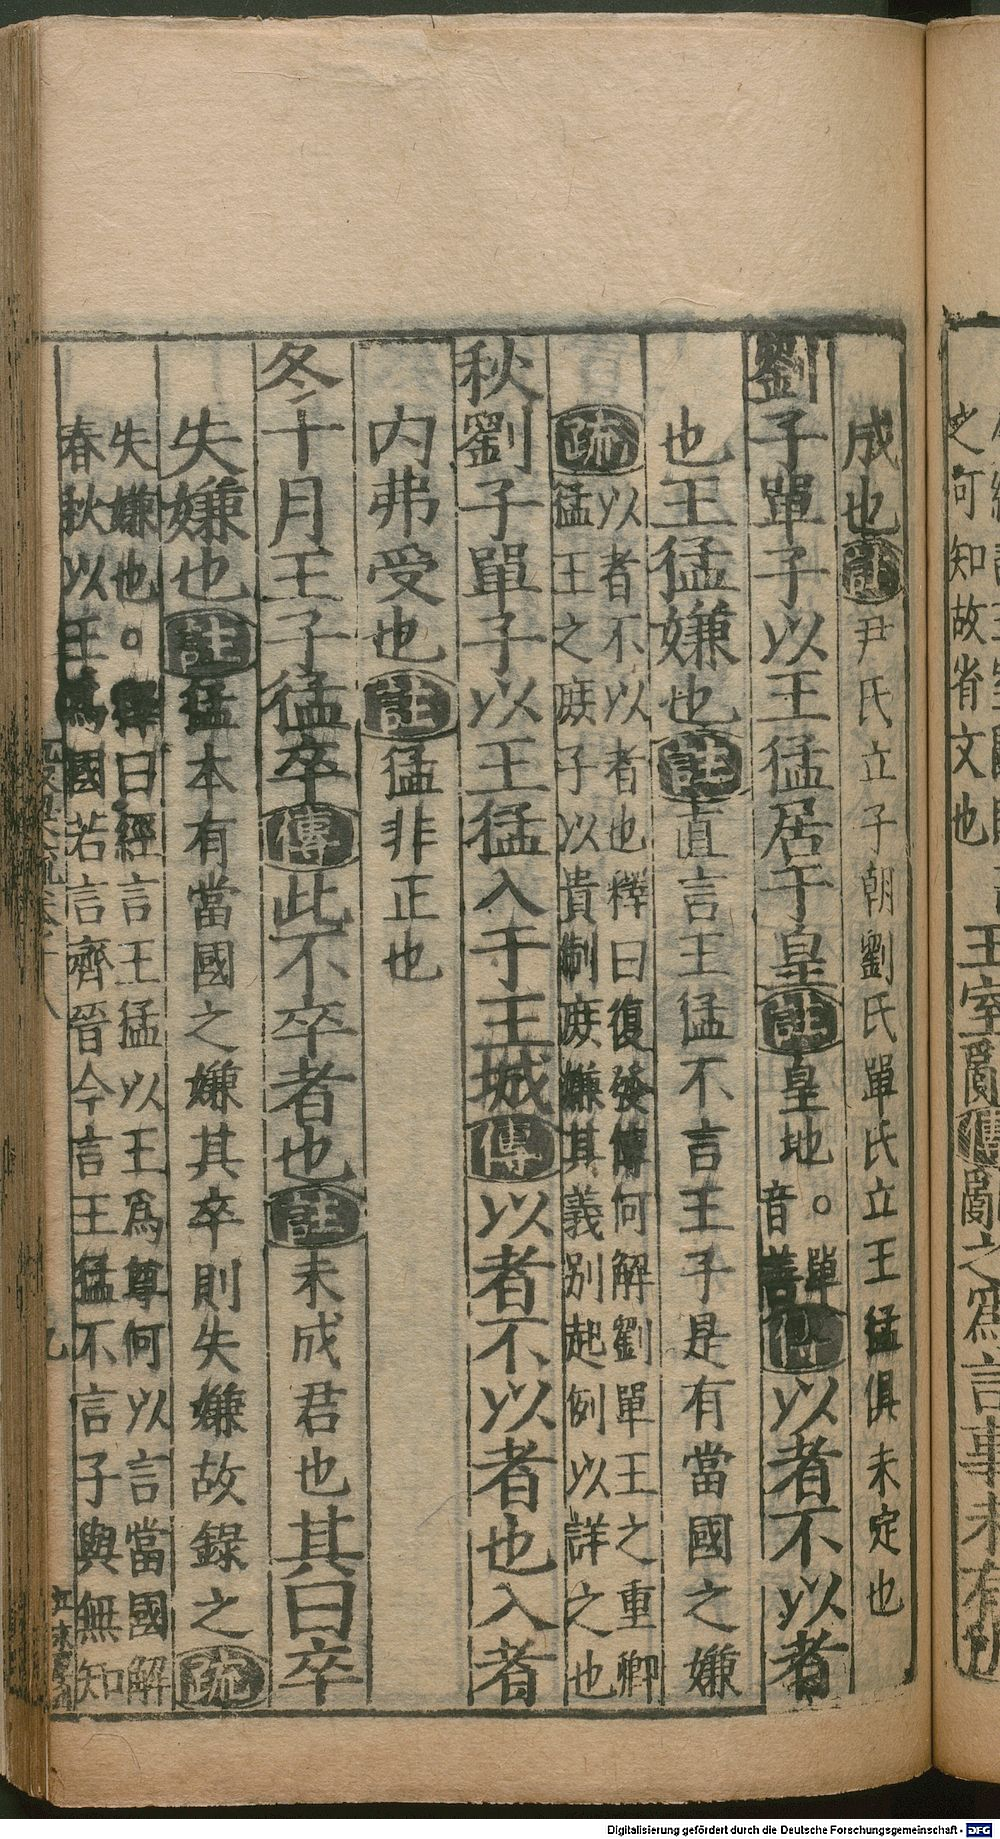 之可知故省文也
王室亂傳亂之爲言事未有所
成也註尹氏立子朝劉氏單氏立王猛俱未定也
劉子單子以王猛居于皇註皇地。單音善傳以者不以者
也王猛嫌也註直言王猛不言王子是有當國之嫌
疏以者不以者也釋曰復發傳何解劉單王之重卿
猛王之庶子以貴制庶嫌其義別起例以詳之也
秋劉子單子以王猛入于王城傳以者不以者也入者
内弗受也註猛非正也
冬十月王子猛卒傳此不卒者也註未成君也其曰卒
失嫌也註猛本有當國之嫌其卒則失嫌故錄之疏
失嫌也。釋曰經言王猛以王爲尊何以言當國解
春秋以王爲國若言齊晉今言王猛不言子與無知
九
Digitalisierung gefördert durch die Deutsche Forschungsgemeinschaft - DFG